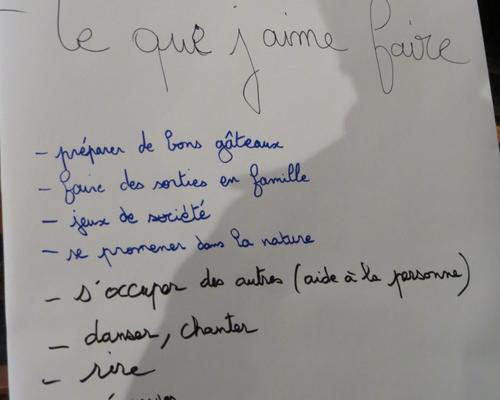 Ce que j'aime faire
- préparer de bons gâteaux
- faire des sorties en famille
- jeux de société
- se promener dans la nature
- s'occuper des autres (aide à la personne)
- danser, chanter
- rire